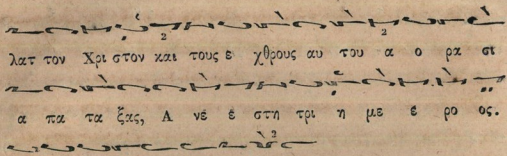 λατ τον Χρι στον και τους ε χθρους αυ του α ο ρα σι
α πα τα ξας, Α νέ ε στη τρι η με ε ρο ος.